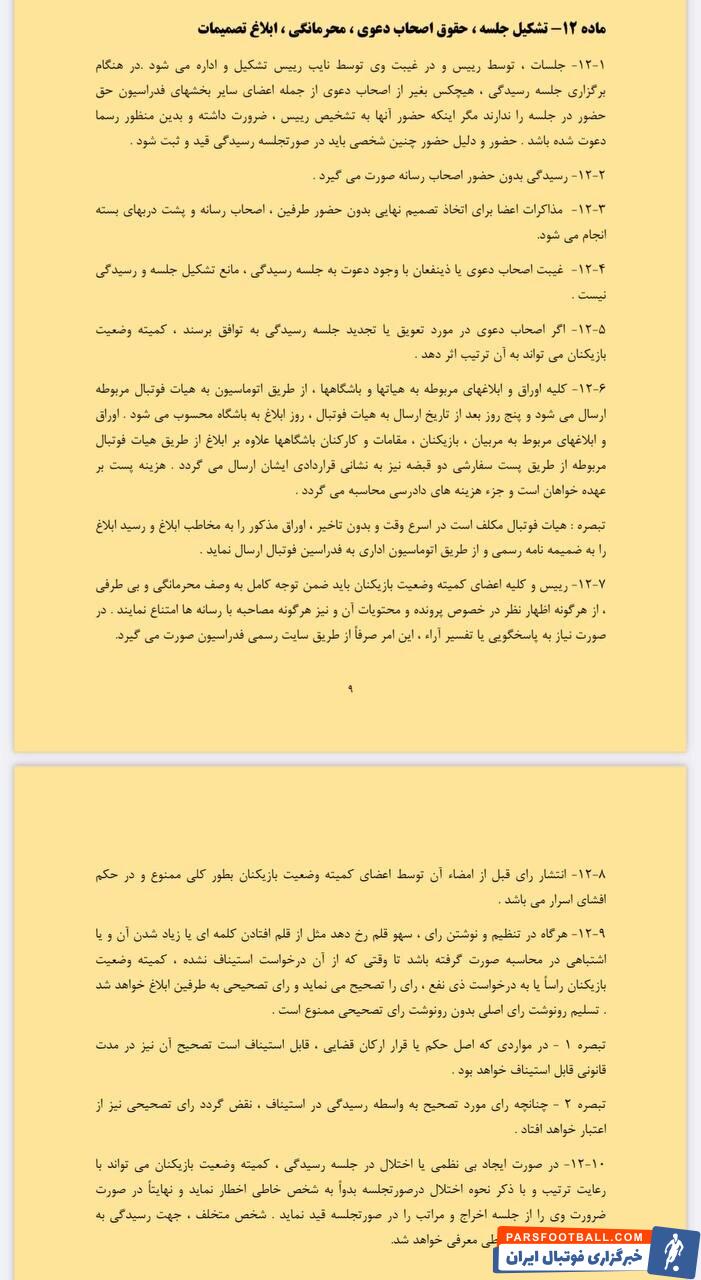 ماده ۱۲- تشکیل جلسه ، حقوق اصحاب دعوی ، محرمانگی ، ابلاغ تصمیمات
۱۲-۱- جلسات ، توسط رییس و در غیبت وی توسط نایب رییس تشکیل و اداره می شود .در هنگام
برگزاری جلسه رسیدگی ، هیچکس بغیر از اصحاب دعوی از جمله اعضای سایر بخشهای فدراسیون حق
حضور در جلسه را ندارند مگر اینکه حضور آنها به تشخیص رییس ، ضرورت داشته و بدین منظور رسما
دعوت شده باشد . حضور و دلیل حضور چنین شخصی باید در صورتجلسه رسیدگی قید و ثبت شود .
۱۲-۲- رسیدگی بدون حضور اصحاب رسانه صورت می گیرد .
۱۲-۳- مذاکرات اعضا برای اتخاذ تصمیم نهایی بدون حضور طرفین ، اصحاب رسانه و پشت دربهای بسته
انجام می شود.
۱۲-۴- غیبت اصحاب دعوی یا ذینفعان با وجود دعوت به جلسه رسیدگی ، مانع تشکیل جلسه و رسیدگی
نیست .
۱۲-۵- اگر اصحاب دعوی در مورد تعویق یا تجدید جلسه رسیدگی به توافق برسند ، کمیته وضعیت
بازیکنان می تواند به آن ترتیب اثر دهد .
۱۲-۶- کلیه اوراق و ابلاغهای مربوطه به هیاتها و باشگاهها ، از طریق اتوماسیون به هیات فوتبال مربوطه
ارسال می شود و پنج روز بعد از تاریخ ارسال به هیات فوتبال ، روز ابلاغ به باشگاه محسوب می شود . اوراق
و ابلاغهای مربوط به مربیان ، بازیکنان ، مقامات و کارکنان باشگاهها علاوه بر ابلاغ از طریق هیات فوتبال
مربوطه از طریق پست سفارشی دو قبضه نیز به نشانی قراردادی ایشان ارسال می گردد . هزینه پست بر
عهده خواهان است و جزء هزینه های دادرسی محاسبه می گردد .
تبصره : هیات فوتبال مکلف است در اسرع وقت و بدون تاخیر ، اوراق مذکور را به مخاطب ابلاغ و رسید ابلاغ
را به ضمیمه نامه رسمی و از طریق اتوماسیون اداری به فدراسین فوتبال ارسال نماید .
۱۲-۷- رییس و کلیه اعضای کمیته وضعیت بازیکنان باید ضمن توجه کامل به وصف محرمانگی و بی طرفی
، از هرگونه اظهار نظر در خصوص پرونده و محتویات آن و نیز هرگونه مصاحبه با رسانه ها امتناع نمایند . در
صورت نیاز به پاسخگویی یا تفسیر آراء ، این امر صرفاً از طریق سایت رسمی فدراسیون صورت می گیرد.
۹
۱۲-۸- انتشار رای قبل از امضاء آن توسط اعضای کمیته وضعیت بازیکنان بطور کلی ممنوع و در حکم
افشای اسرار می باشد .
۱۲-۹- هرگاه در تنظیم و نوشتن رای ، سهو قلم رخ دهد مثل از قلم افتادن کلمه ای یا زیاد شدن آن و یا
اشتباهی در محاسبه صورت گرفته باشد تا وقتی که از آن درخواست استیناف نشده ، کمیته وضعیت
بازیکنان راساً یا به درخواست ذی نفع ، رای را تصحیح می نماید و رای تصحیحی به طرفین ابلاغ خواهد شد
. تسلیم رونوشت رای اصلی بدون رونوشت رای تصحیحی ممنوع است .
تبصره ۱ - در مواردی که اصل حکم یا قرار ارکان قضایی ، قابل استیناف است تصحیح آن نیز در مدت
قانونی قابل استیناف خواهد بود .
تبصره ۲ - چنانچه رای مورد تصحیح به واسطه رسیدگی در استیناف ، نقض گردد رای تصحیحی نیز از
اعتبار خواهد افتاد .
۱۲-۱۰- در صورت ایجاد بی نظمی یا اختلال در جلسه رسیدگی ، کمیته وضعیت بازیکنان می تواند با
رعایت ترتیب و با ذکر نحوه اختلال درصورتجلسه بدواً به شخص خاطی اخطار نماید و نهایتاً در صورت
ضرورت وی را از جلسه اخراج و مراتب را در صورتجلسه قید نماید . شخص متخلف ، جهت رسیدگی به
معرفی خواهد شد.
PARSFOOTBALL.COM
خبرگزاری فوتبال ایران